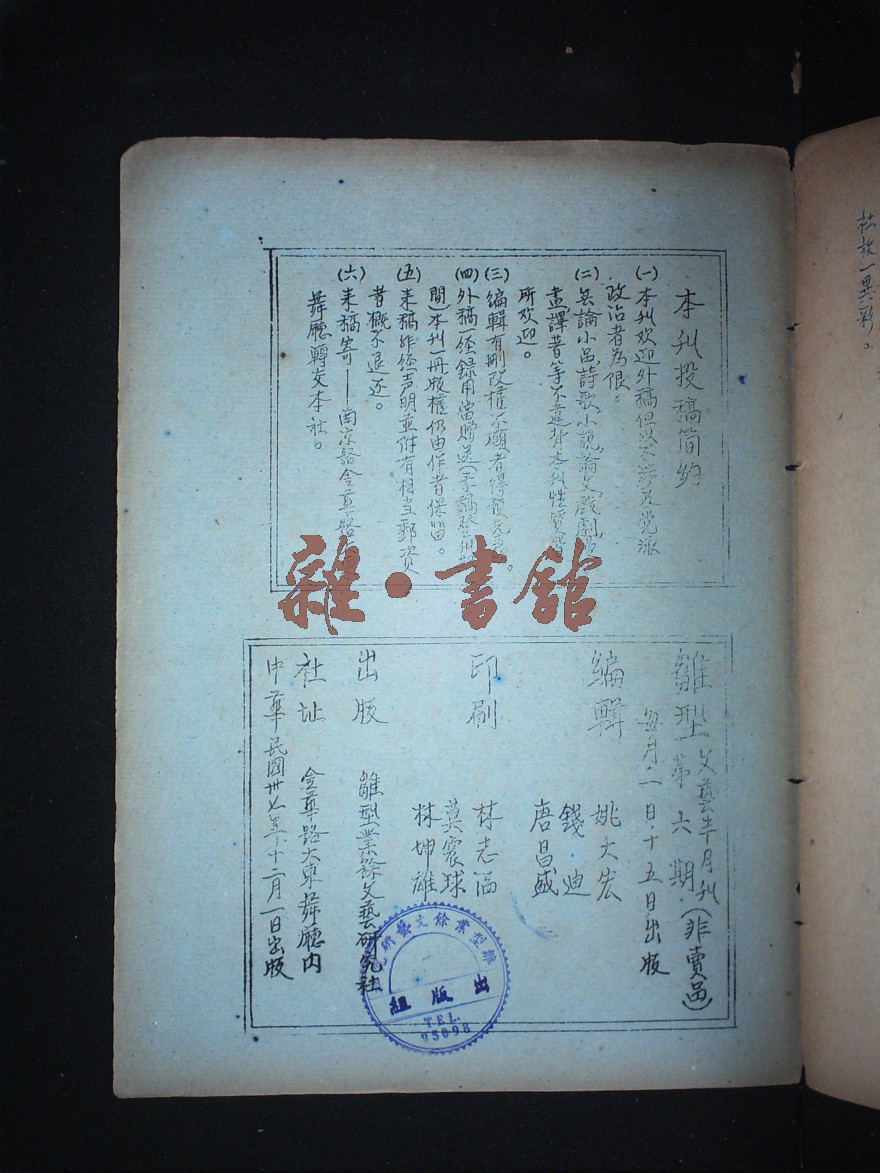 本刊投稿简约
(一)本刊欢迎外稿但以不涉及党派
政治者为限。
(二)無論小品詩歌小説論文戲劇
畫譯著等不違背本刊性質者
所欢迎。
(三)编輯有刪改權不願者得預先
(四)外稿一经錄用當贈送
間)本刊一冊版權仍由作者保留。
(五)来稿非经声明並附有相当郵资
者概不退还。
(六)来稿寄——南京路金華路
舞廳轉交本社。
雛型文藝半月刊(非賣品)
第六期·
每月一日·十五日出版
编輯 姚大宏
錢·迪
唐昌盛
印刷 林志
莫震球
林坤雄
出版 雛型業餘文藝研究社
社址 金華路大東舞廳内
中華民國卅七年十二月一日出版
雛型業餘文藝研究社
出版組
TEL.
95098
雜·書館
杜牧一異彩。